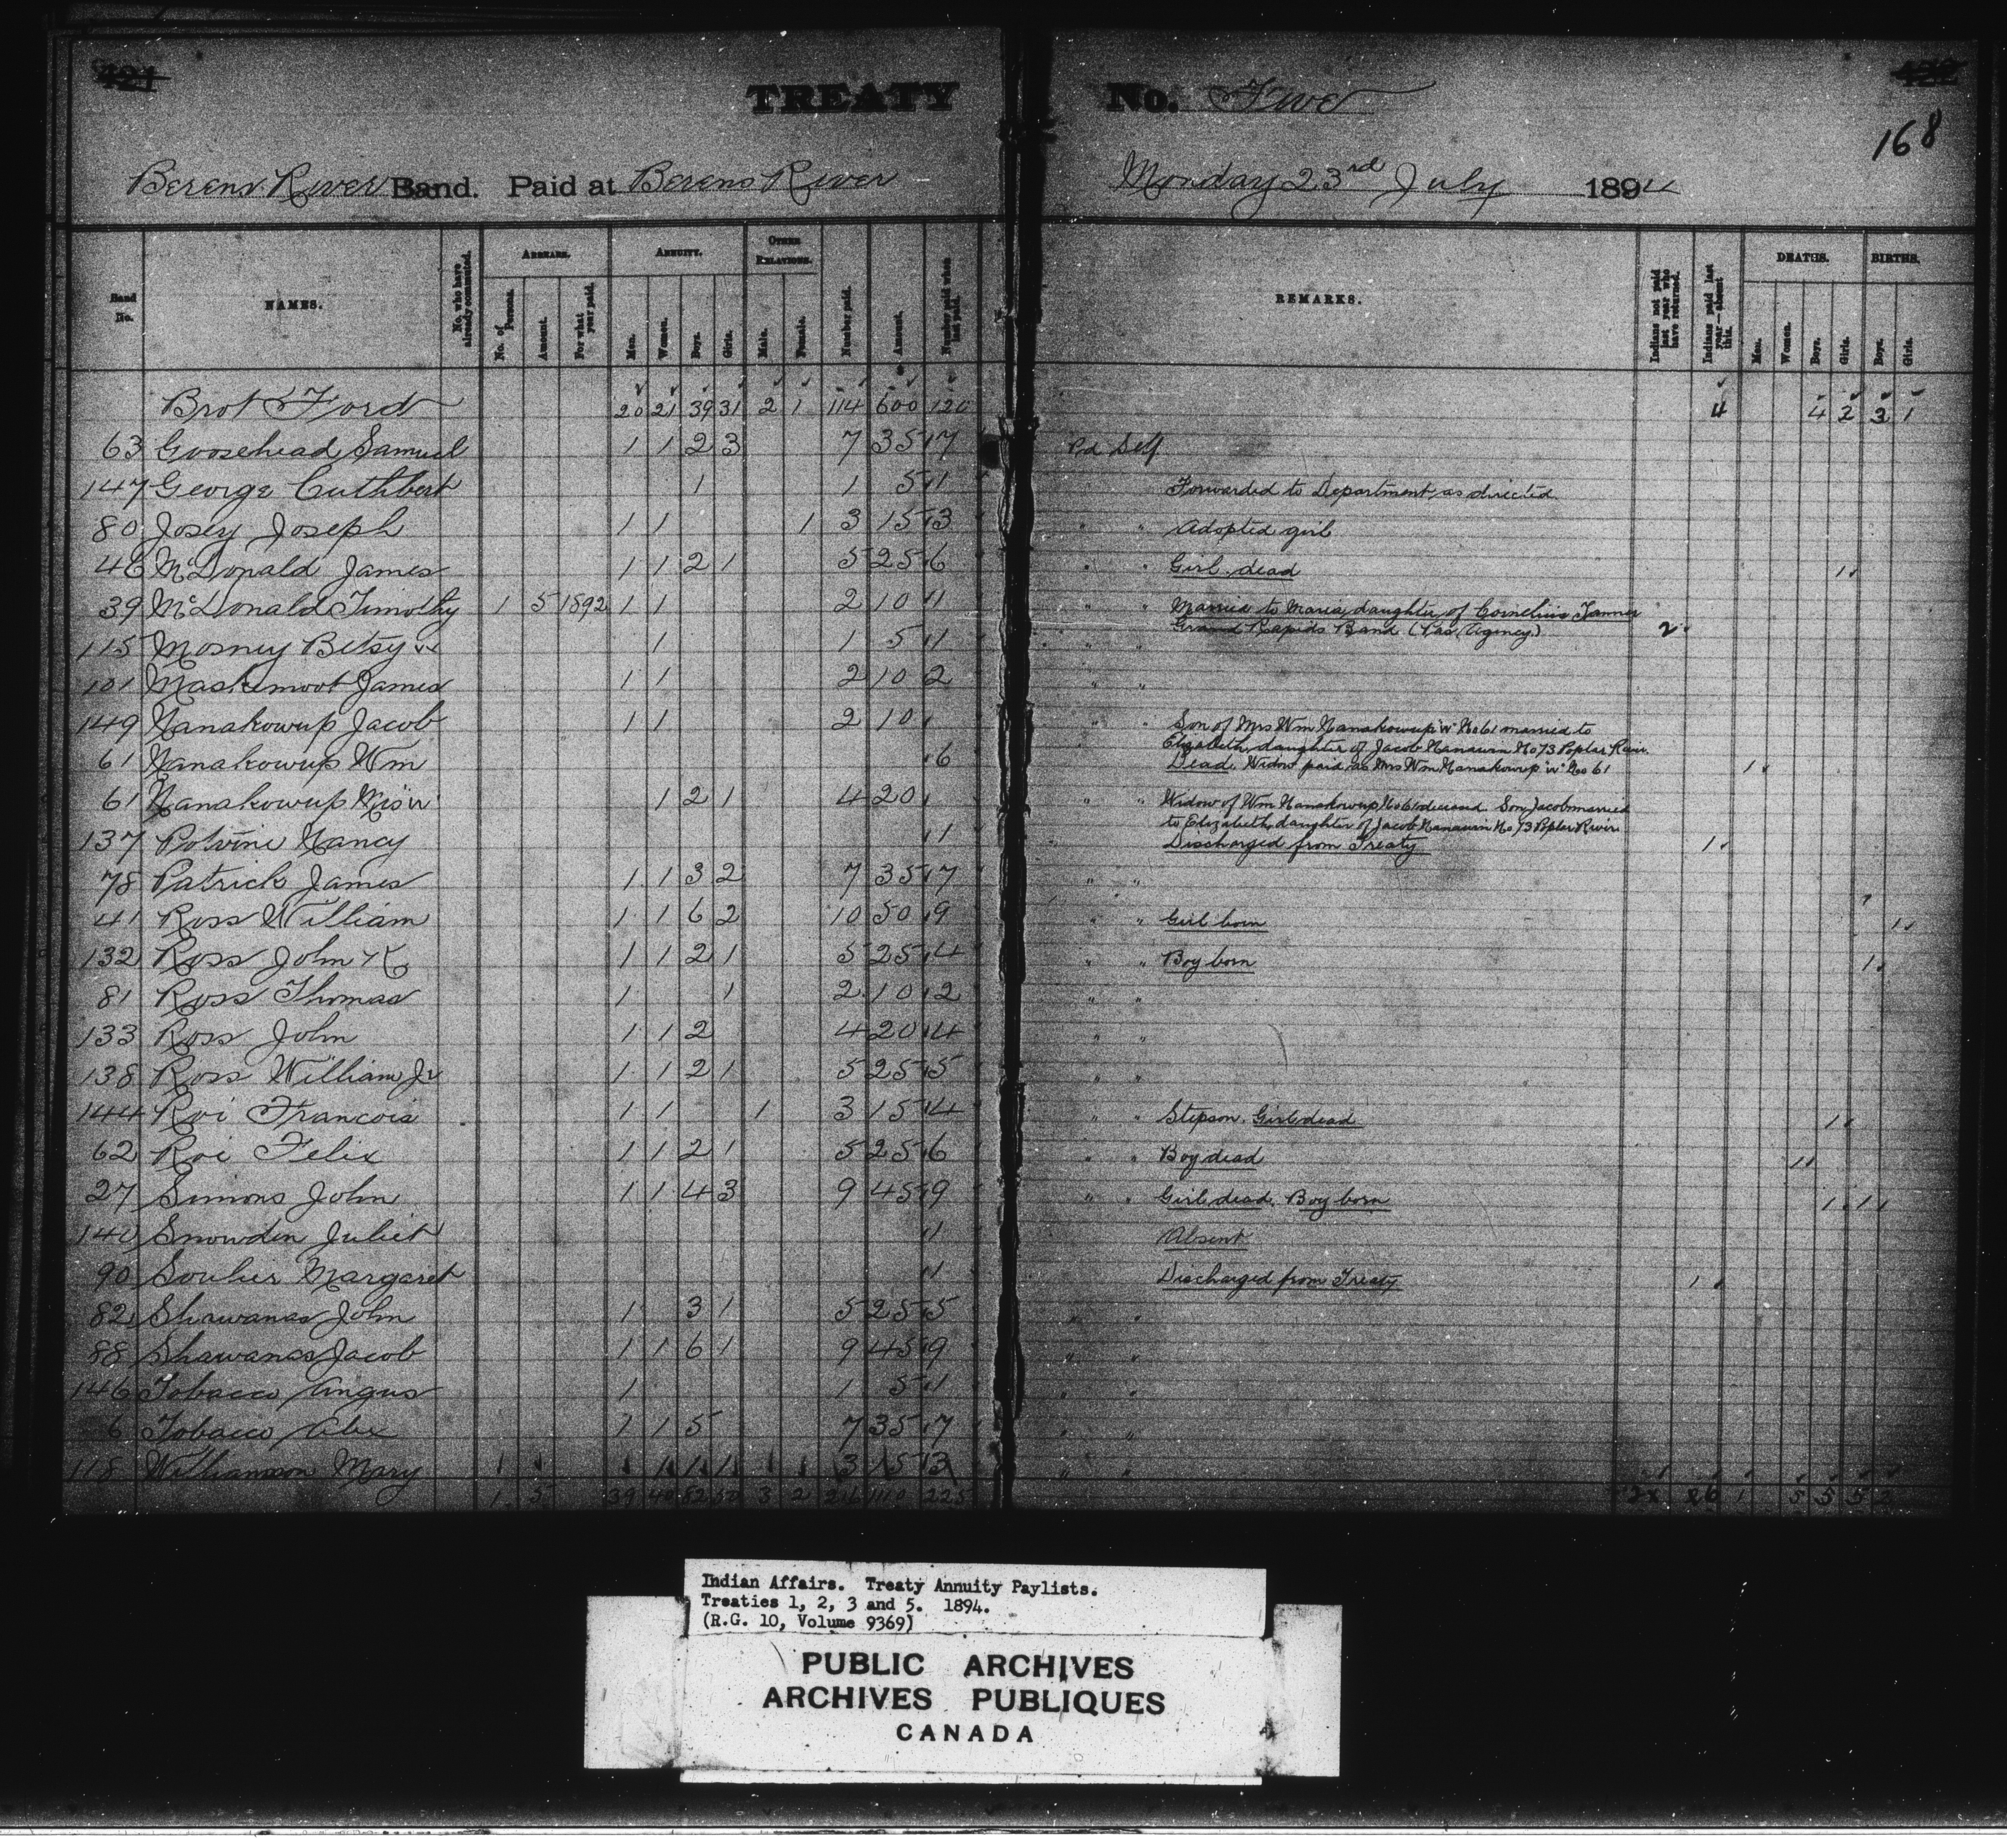 421
TREATY No. Five
422
168
Berens River Band. Paid at Berens River Monday 23rd July 1894
Band No. NAMES. No. who have already commuted. ARREARS. No. of Persons. Amount. For what year paid. ANNUITY. Men. Women. Boys. Girls. OTHER RELATIONS. Male. Female. Number paid. Amount. Number paid when last paid. REMARKS. Indians not paid last year who have returned. Indians paid last year—absent this. DEATHS. Men. Women. Boys. Girls. BIRTHS. Boys. Girls.
Brot Ford 20 21 39 31 2 1 114 600 120 4 4 2 3 1
63 Goosehead Samuel 1 1 2 3 7 35 7 Pd Self
147 George Cuthbert 1 1 5 1 Forwarded to Department as directed
80 Josey Joseph 1 1 1 3 15 3 " " Adopted girl
46 McDonald James 1 1 2 1 5 25 6 " " Girl dead 1
39 McDonald Timothy 1 5 1892 1 1 2 10 1 " " Married to Maria, daughter of Cornelius Tanner
Grand Rapids Band (Pas Agency) 2
115 Morney Betsy 1 1 5 1 " "
101 Maskemoot James 1 1 2 10 2 " "
149 Nanakowup Jacob 1 1 2 10 " " Son of Mrs Wm Nanakowup "W" No 61 married to
Elizabeth, daughter of Jacob Nanawin No 73 Poplar River.
61 Nanakowup Wm 6 Dead. Widow paid as Mrs Wm Nanakowup "W" No 61 1
61 Nanakowup Mrs "W" 1 2 1 4 20 " " Widow of Wm Nanakowup No 61 deceased. Son Jacob married
to Elizabeth, daughter of Jacob Nanawin No 73 Poplar River
137 Potvine Nancy 1 Discharged from Treaty 1
78 Patrick James 1 1 3 2 7 35 7 " "
41 Ross William 1 1 6 2 10 50 9 " " Girl born 1
132 Ross John K 1 1 2 1 5 25 4 " " Boy born 1
81 Ross Thomas 1 1 2 10 2 " "
133 Ross John 1 1 2 4 20 4 " "
138 Ross William Jr 1 1 2 1 5 25 5 " "
144 Roi Francois 1 1 1 3 15 4 " " Stepson. Girl dead 1
62 Roi Felix 1 1 2 1 5 25 6 " " Boy dead 1
27 Simons John 1 1 4 3 9 45 9 " " Girl dead. Boy born 1 1
140 Snowden Juliet 1 Absent
90 Soulier Margaret 1 Discharged from Treaty 1
82 Shawanas John 1 3 1 5 25 5 " "
88 Shawanas Jacob 1 1 6 1 9 45 9 " "
146 Tobacco Angus 1 1 5 1 " "
6 Tobacco Alex 1 1 5 7 35 7 " "
118 Williamson Mary 1 1 1 3 15 3 " "
1 5 39 40 82 50 3 2 216 1110 225 1 5 5 5 2
Indian Affairs. Treaty Annuity Paylists.
Treaties 1, 2, 3 and 5. 1894.
(R.G. 10, Volume 9369)
PUBLIC ARCHIVES
ARCHIVES PUBLIQUES
CANADA